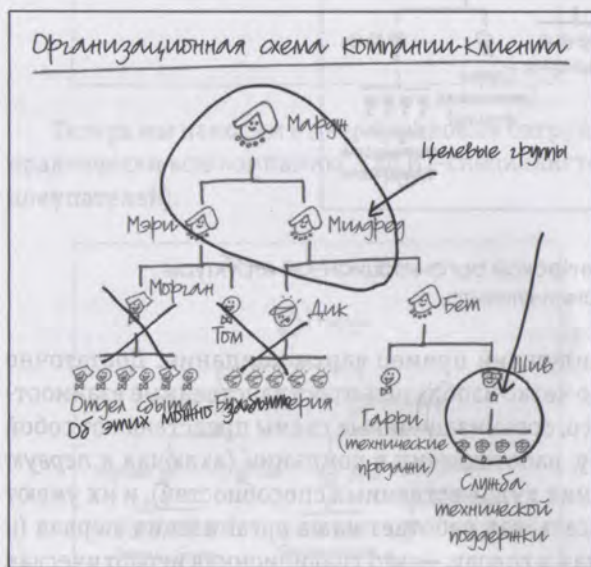 Организационная схема компании-клиента
Марун
Целевые группы
Мэри
Милдред
Морган
Том
Дик
Бет
Шив
Отдел сбыта
Бухгалтерия
Об этих можно забыть
Гарри
(технические
продажи)
Служба
технической
поддержки